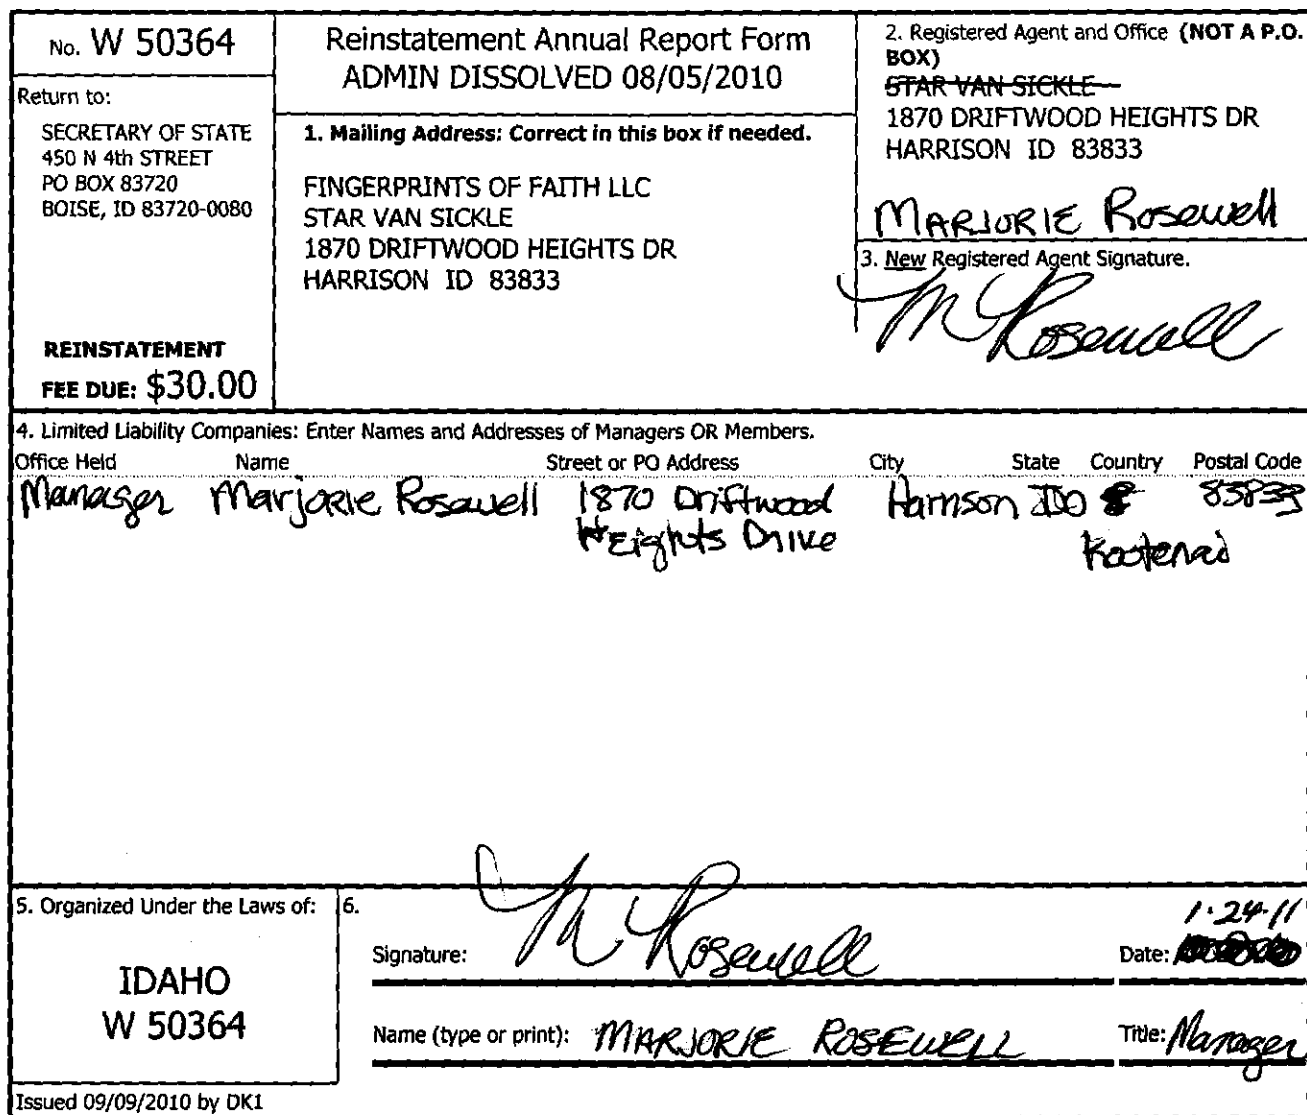 No. W 50364
Return to:
SECRETARY OF STATE
450 N 4th STREET
PO BOX 83720
BOISE, ID 83720-0080
REINSTATEMENT
FEE DUE: $30.00
Reinstatement Annual Report Form
ADMIN DISSOLVED 08/05/2010
1. Mailing Address: Correct in this box if needed.
FINGERPRINTS OF FAITH LLC
STAR VAN SICKLE
1870 DRIFTWOOD HEIGHTS DR
HARRISON ID 83833
2. Registered Agent and Office (NOT A P.O.
BOX)
STAR VAN SICKLE
1870 DRIFTWOOD HEIGHTS DR
HARRISON ID 83833
MARJORIE Rosewell
3. New Registered Agent Signature.
M Rosewell
4. Limited Liability Companies: Enter Names and Addresses of Managers OR Members.
Office Held Name Street or PO Address City State Country Postal Code
Manager Marjorie Rosewell 1870 Driftwood Harrison ID 83833
Heights Drive Kootenai
5. Organized Under the Laws of:
IDAHO
W 50364
6.
1·24·11
Signature: M Rosewell Date:
Name (type or print): MARJORIE ROSEWELL Title: Manager
Issued 09/09/2010 by DK1